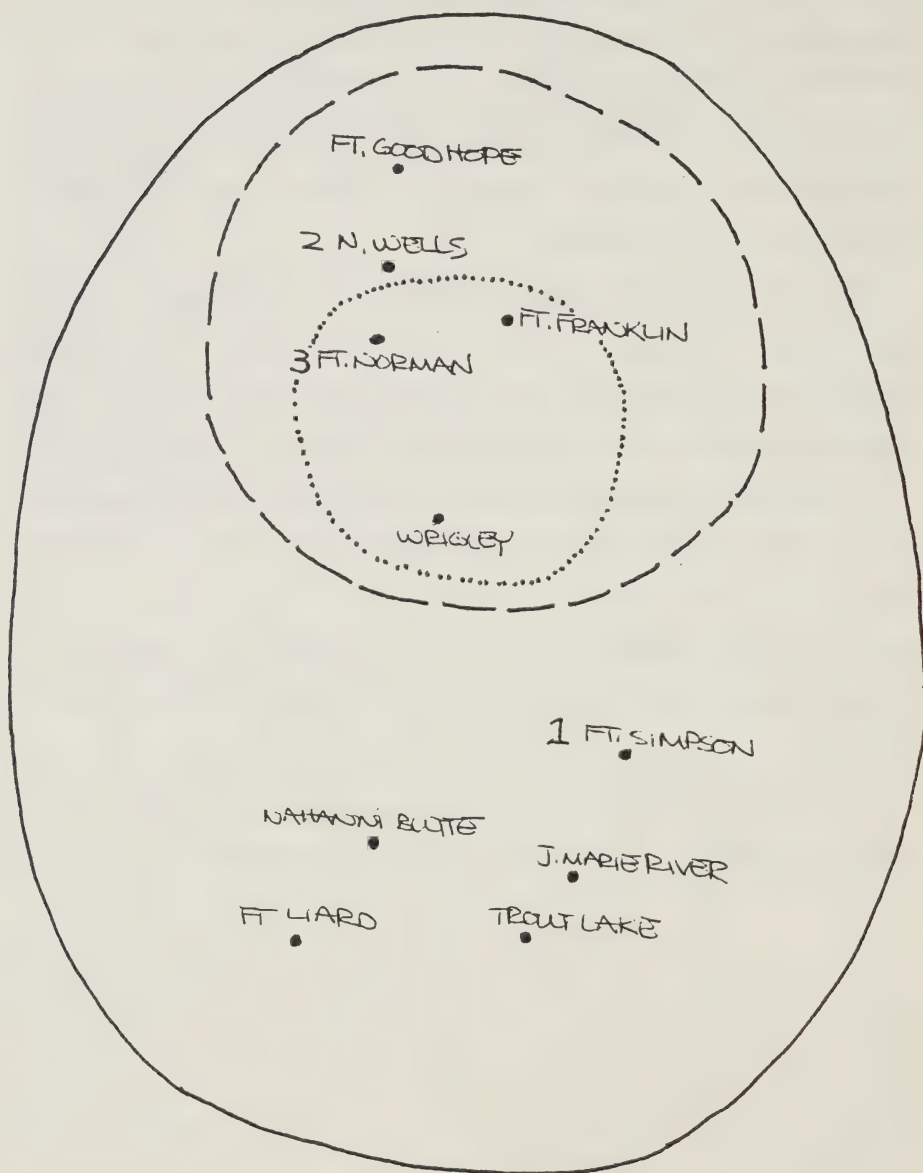 FT. GOOD HOPE
2 N. WELLS
FT. FRANKLIN
3 FT. NORMAN
WRIGLEY
1 FT. SIMPSON
NAHANNI BUTTE
J. MARIE RIVER
FT LIARD
TROUT LAKE